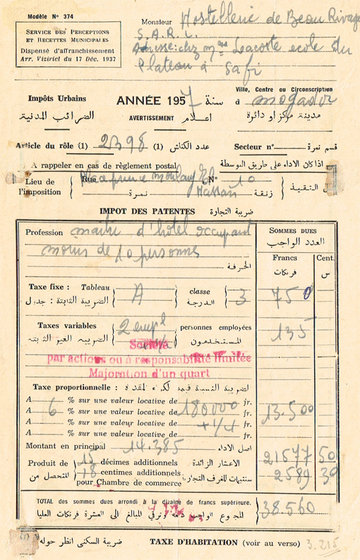 Modèle N° 374
SERVICE DES PERCEPTIONS
ET RECETTES MUNICIPALES
Dispensé d'affranchissement
Arr. Viziriel du 17 Déc. 1937
Monsieur Hostellerie de Beau Rivage
S.A.R.L.
Lacoste école du
Plateau à Safi
Impôts Urbains
الضرائب المدنية
ANNÉE 1957 سنة
AVERTISSEMENT اعلام
Ville, Centre ou Circonscription
à mogador
مدينة مركز او دائرة
Article du rôle (1) : 2398 عدد الكناش (1)
Secteur n° قسم نمرة
A rappeler en cas de règlement postal
اذا كان الاداء على طريق البوسطة
Lieu de l'imposition
Rue
Hassan
N° 10
نمرة
زنقة
IMPOT DES PATENTES ضريبة التجارة
Profession maître d'hôtel occupant
moins de 10 personnes
الحرفة
SOMMES DUES
العدد الواجب
Francs
فرنكات
Cent.
س
Taxe fixe : Tableau A classe 3
الدرجة
750
Taxes variables 2 empl personnes employées
المستخدمون
135
Société
par actions ou à responsabilité limitée
Majoration d'un quart
Taxe proportionnelle :
A 6 % sur une valeur locative de 180000 fr.
13.500
A % sur une valeur locative de +1/4 fr.
A % sur une valeur locative de fr.
Montant en principal 14.385 اصل الاداء
Produit de décimes additionnels
الاعشار الزائدة
21577 50
centimes additionnels
pour Chambre de commerce
2589 30
TOTAL des sommes dues arrondi à la dizaine de francs supérieure.
38.560
ضريبة السكنى انظر حوله
TAXE D'HABITATION (voir au verso) 3.215